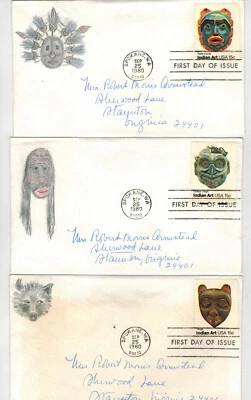 SPOKANE, WA
SEP
25
1980
Indian Art USA 15c
FIRST DAY OF ISSUE
Mrs. Robert Morris Armistead
Sherwood Lane
Staunton
Virginia 24401
SPOKANE, WA
SEP
25
1980
Indian Art USA 15c
FIRST DAY OF ISSUE
Mrs Robert Morris Armistead
Sherwood Lane
Staunton, Virginia
24401
SPOKANE, WA
SEP
25
1980
Indian Art USA 15c
FIRST DAY OF ISSUE
Mrs Robert Morris Armistead
Sherwood Lane
Staunton Virginia 24401